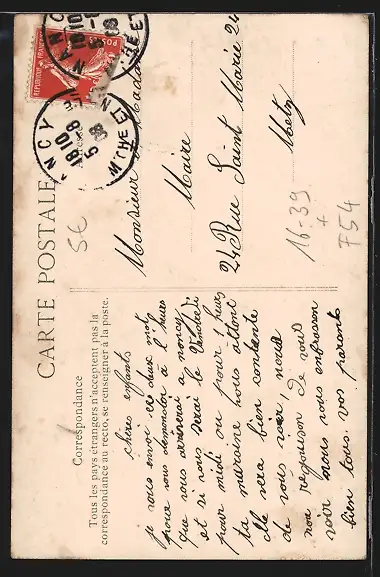 CARTE POSTALE
Correspondance
Tous les pays étrangers n'acceptent pas la
correspondance au recto, se renseigner à la poste.
Adresse
REPUBLIQUE FRANÇAISE
POSTES
NANCY
18 10
5 - 08
MTHE ET M
NANCY
18 10
5 - 08
MTHE ET M
Monsieur et Mada
Maire
24 Rue Saint Marie 24
Metz
chères enfants
je vous envoi ces deux mot
pour vous demander à l heures
que vous arriverai a nancy
et si vous serai le Vendredi
pour midi ou pour 7 heurs
ta marraine nous attend
elle sera bien contente
de vous voir, nous
nou rejouison de vous
voir nous vous embrasson
bien tous vos parants
SE
16-39
+
F54